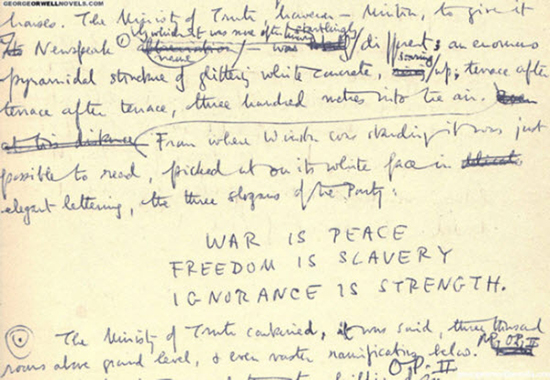 GEORGEORWELLNOVELS.COM
houses. The Ministry of Truth, however – Minitru, to give it
Newspeak by which it was more often
name / – was / different; an enormous
pyramidal structure of glittering white concrete, soaring / up, terrace after
terrace after terrace, three hundred metres into the air.
at this distance From where Winston was standing it was just
possible to read, picked out on its white face in
elegant lettering, the three slogans of the Party:
WAR IS PEACE
FREEDOM IS SLAVERY
IGNORANCE IS STRENGTH.
The Ministry of Truth contained, it was said, three thousand
rooms above ground level, & even vaster ramifications below.